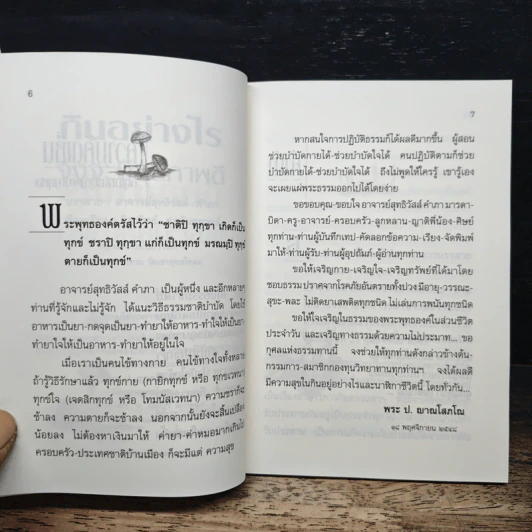 6
พระพุทธองค์ตรัสไว้ว่า "ชาติปิ ทุกขา เกิดก็เป็น
ทุกข์ ชราปิ ทุกขา แก่ก็เป็นทุกข์ มรณมฺปิ ทุกขํ
ตายก็เป็นทุกข์"
อาจารย์สุทธิวัสส์ คำภา เป็นผู้หนึ่ง และอีกหลายๆ
ท่านที่รู้จักและไม่รู้จัก ได้แนะวิธีธรรมชาติบำบัด โดยใช้
อาหารเป็นยา-กดจุดเป็นยา-ทำยาให้อาหาร-ทำใจให้เป็นยา
ทำยาใจให้เป็นอาหาร-ทำยาให้อยู่ในใจ
เมื่อเราเป็นคนไข้ทางกาย คนไข้ทางใจทั้งหลาย
ถ้ารู้วิธีรักษาแล้ว ทุกข์กาย (กายิกทุกข์ หรือ ทุกขเวทนา)
ทุกข์ใจ (เจตสิกทุกข์ หรือ โทมนัสเวทนา) ความชราก็จะ
ช้าลง ความตายก็จะช้าลง นอกจากนั้นยังจะสิ้นเปลือง
น้อยลง ไม่ต้องหาเงินมาให้ ค่ายา-ค่าหมอมากเกินไป
ครอบครัว-ประเทศชาติบ้านเมือง ก็จะมีแต่ ความสุข
7
หากสนใจการปฏิบัติธรรมก็ได้ผลดีมากขึ้น ผู้สอน
ช่วยบำบัดกายได้-ช่วยบำบัดใจได้ คนปฏิบัติตามก็ช่วย
บำบัดกายได้-ช่วยบำบัดใจได้ ถึงไม่พูดให้ใครรู้ เขารู้เอง
จะเผยแผ่พระธรรมออกไปได้โดยง่าย
ขอขอบคุณ-ขอบใจ อาจารย์สุทธิวัสส์ คำภา มารดา-
บิดา-ครู-อาจารย์-ครอบครัว-ลูกหลาน-ญาติพี่น้อง-ศิษย์
ทุกท่าน-ท่านผู้บันทึกเทป-คัดลอกข้อความ-เรียง-จัดพิมพ์
มาให้-ท่านผู้รับ-ท่านผู้อุปถัมภ์-ผู้อ่านทุกท่าน
ขอให้เจริญกาย-เจริญใจ-เจริญทรัพย์ที่ได้มาโดย
ชอบธรรม ปราศจากโรคภัยอันตรายทั้งปวง-มีอายุ-วรรณะ-
สุขะ-พละ ไม่ติดยาเสพติดทุกชนิด ไม่เล่นการพนันทุกชนิด
ขอให้ใจเจริญในธรรมของพระพุทธองค์ในส่วนชีวิต
ประจำวัน และเจริญทางธรรมด้วยความไม่ประมาท... ขอ
กุศลแห่งธรรมทานนี้ จงช่วยให้ทุกท่านดังกล่าวข้างต้น
กรรมการ-สมาชิกกองทุนวิทยาทานทุกท่านฯ จงได้ผลดี
มีความสุขในกินอยู่อย่างไรและนาฬิกาชีวิตนี้ โดยทั่วกัน...
พระ ป. ญาณโสภโณ
๑๘ พฤศจิกายน ๒๕๔๘